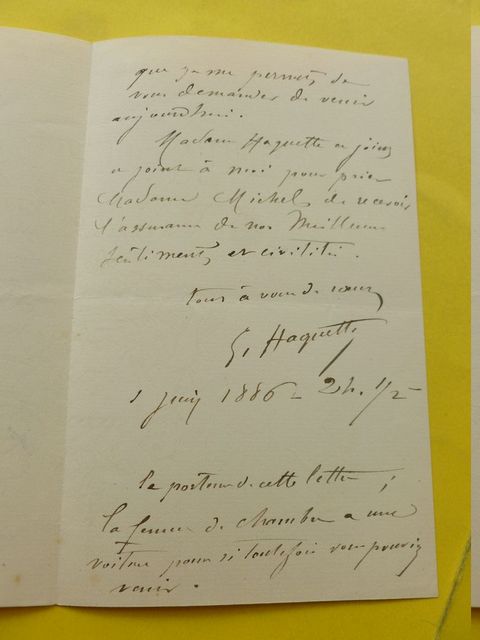 que je me permets de
vous demander de venir
aujourdhui.
Madame Haquette se joins
a joint à moi pour prier
Madame Michel, de recevoir
l'assurance de nos Meilleurs
sentiments, et civilités.
tout à vous de cœur
G. Haquette
1 juin 1886 - 2h. 1/2
le porteur de cette lettre ;
la femme de chambre a une
voiture pour si toutefois vous pouviez
venir.